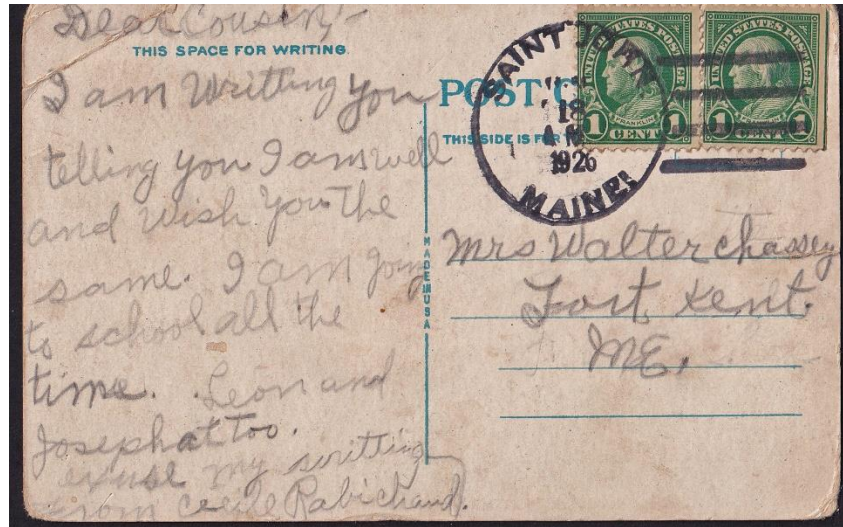 Dear Cousin,-
THIS SPACE FOR WRITING.
I am Writting you
telling you I am well
and wish you the
same. I am going
to school all the
time. Leon and
Josephat too.
exuse my writting
from Cecile Rabichaud.
MADE IN USA
POST C
THIS SIDE IS FOR
SAINT JOHN
18
AM
1926
MAINE.
UNITED STATES POSTAGE
FRANKLIN
1 CENT 1
UNITED STATES POSTAGE
FRANKLIN
1 CENT 1
Mrs Walter Chassey
Fort Kent.
ME,